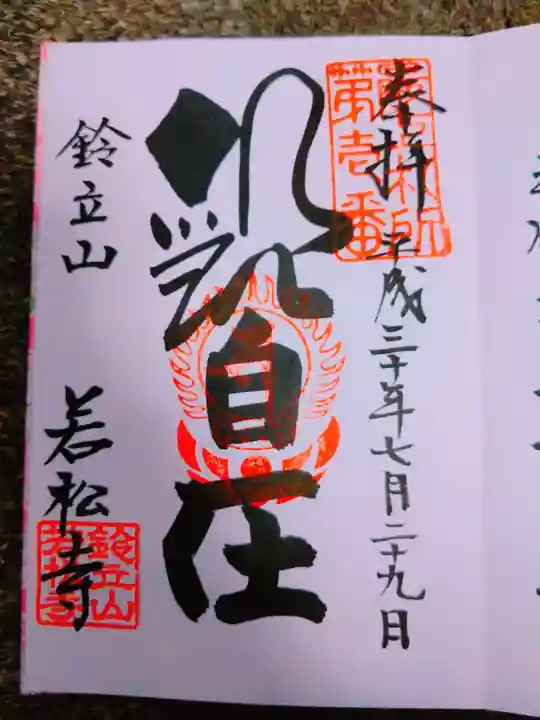 奉拝
平成三十年七月二十九日
第壱番
觀自在
鈴立山
若松寺
鈴立山
若松寺